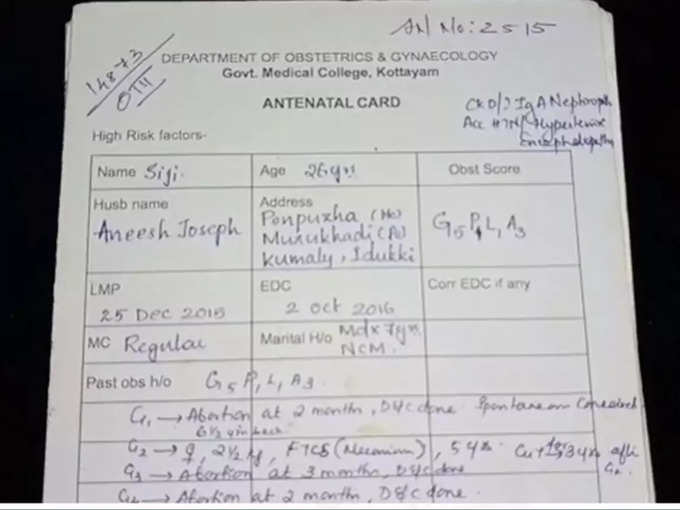 AN No: 2515
14873
OTH
DEPARTMENT OF OBSTETRICS & GYNAECOLOGY
Govt. Medical College, Kottayam
ANTENATAL CARD
CKD/? IgA Nephropath
Acc HTN/Hypertensive
Encephalopathy
High Risk factors-
Name Siji. Age 26yrs Obst Score
Husb name Aneesh Joseph
Address Ponpuzha (Ho)
Murukkadi (Po)
Kumaly, Idukki
G5P1L1A3
LMP 25 Dec 2015
EDC 2 Oct 2016
Corr EDC if any
MC Regular
Marital H/o Mdx 7yrs.
NCM.
Past obs h/o G5P1L1A3.
G1 → Abortion at 2 months, D&C done. Spontaneous Conceived
G2 → ♀, 2½ kg, FTCS (Meconium), 5 yrs. CuT for 3 yrs after
G3 → Abortion at 3 months, D&C done
G4 → Abortion at 2 months, D&C done.